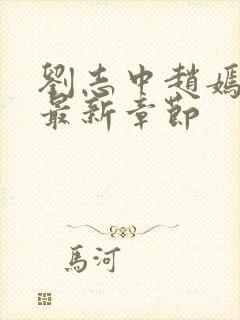 劉志中趙嫣
最新章節
馬河